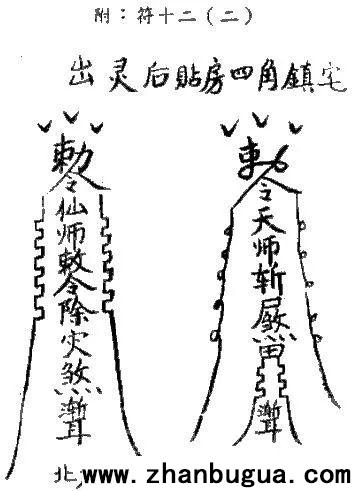 附：符十二(二)
出灵后貼房四角鎮宅
勅令仙师敕令除灾煞
勅令天师斩
北
www.zhanbugua.com